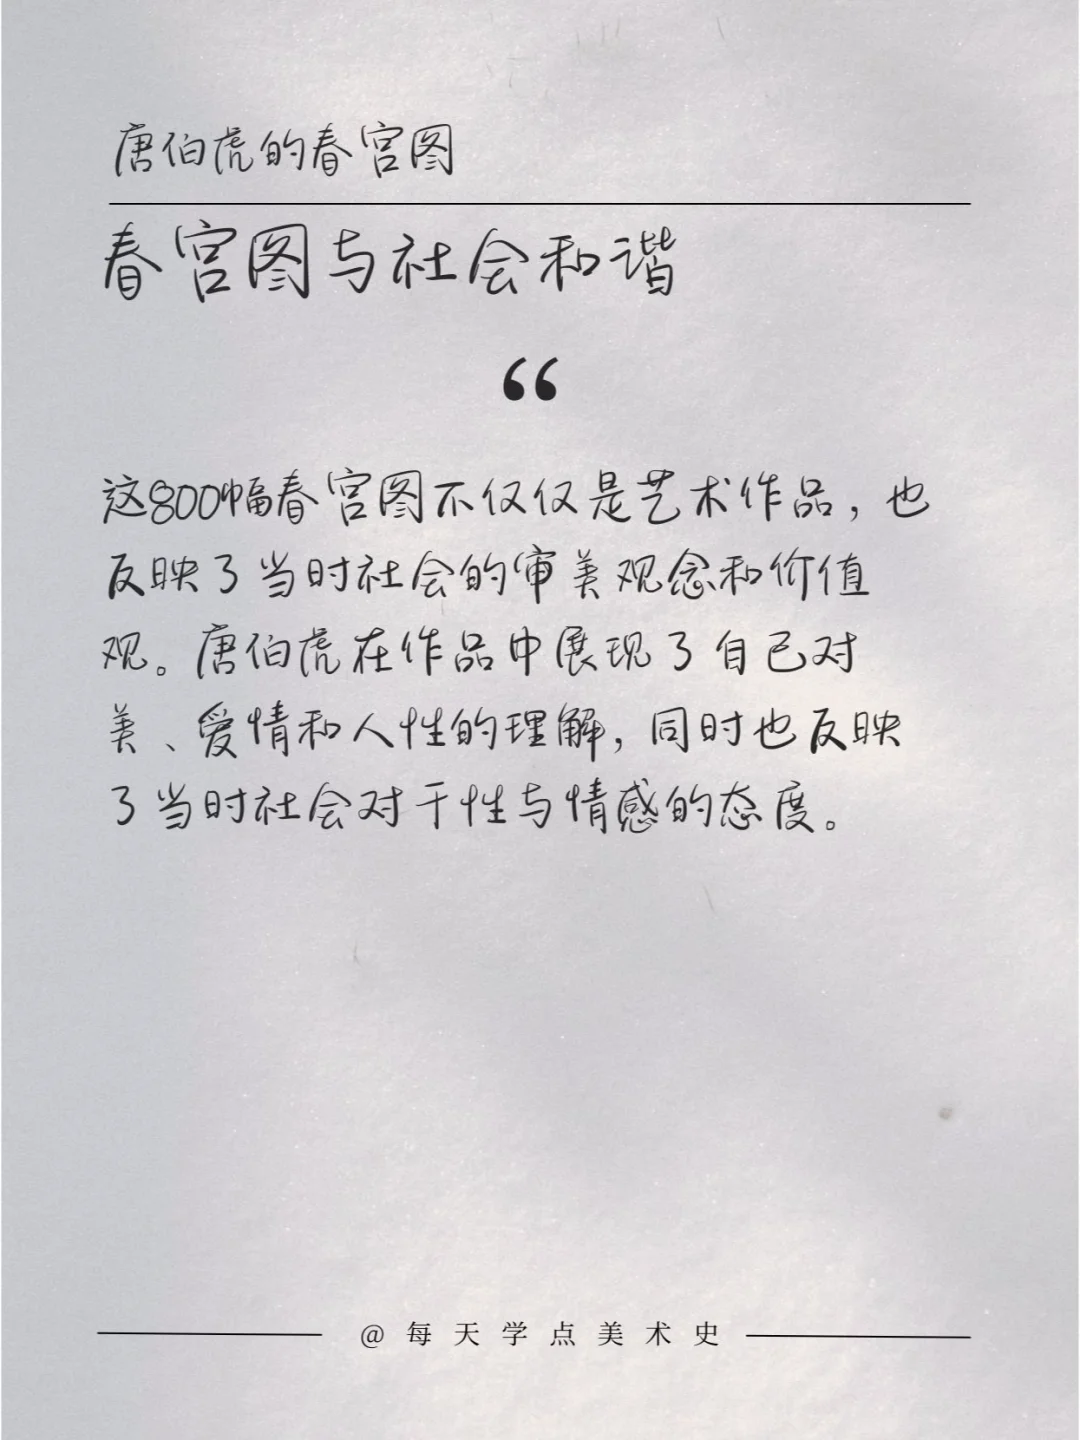 唐伯虎的春宫图
春宫图与社会和谐
“
这800幅春宫图不仅仅是艺术作品，也
反映了当时社会的审美观念和价值
观。唐伯虎在作品中展现了自己对
美、爱情和人性的理解，同时也反映
了当时社会对于性与情感的态度。
@每天学点美术史